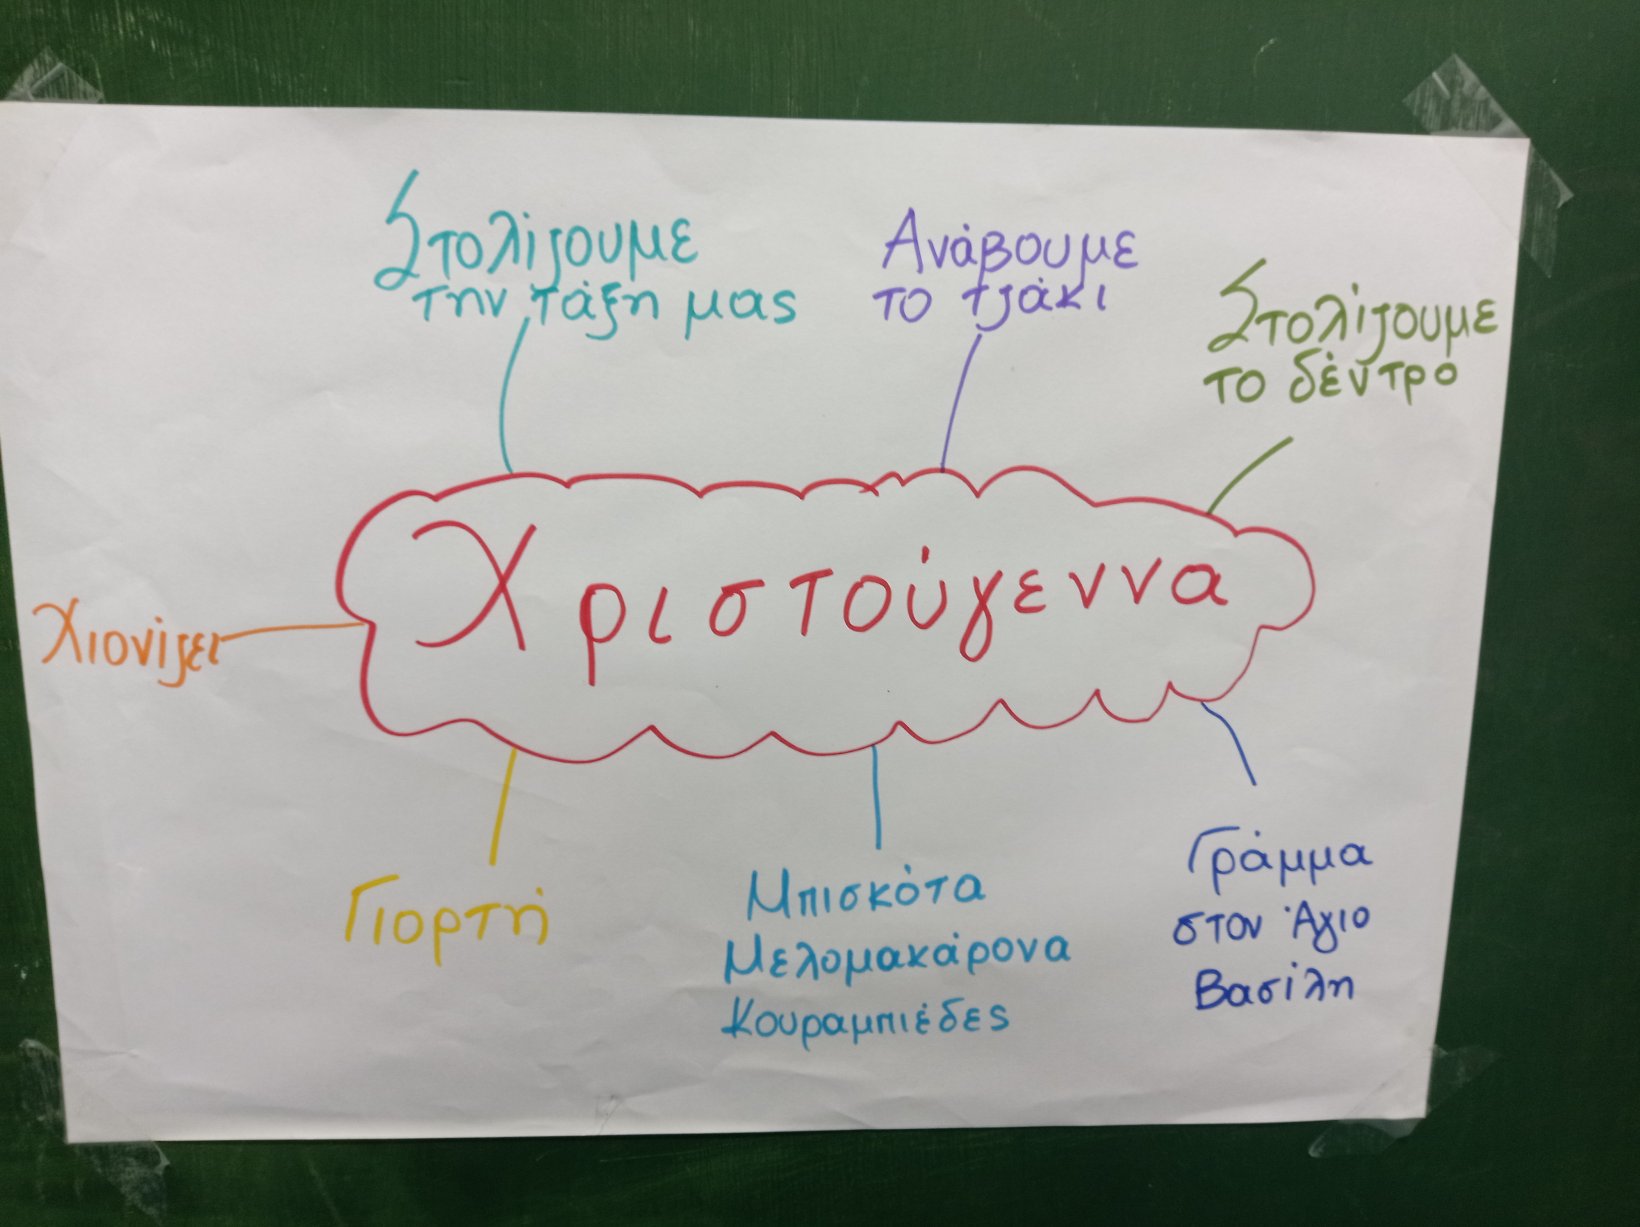 Στολίζουμε
την τάξη μας
Ανάβουμε
το τζάκι
Στολίζουμε
το δέντρο
Χριστούγεννα
Χιονίζει
Γιορτή
Μπισκότα
Μελομακάρονα
Κουραμπιέδες
Γράμμα
στον Άγιο
Βασίλη